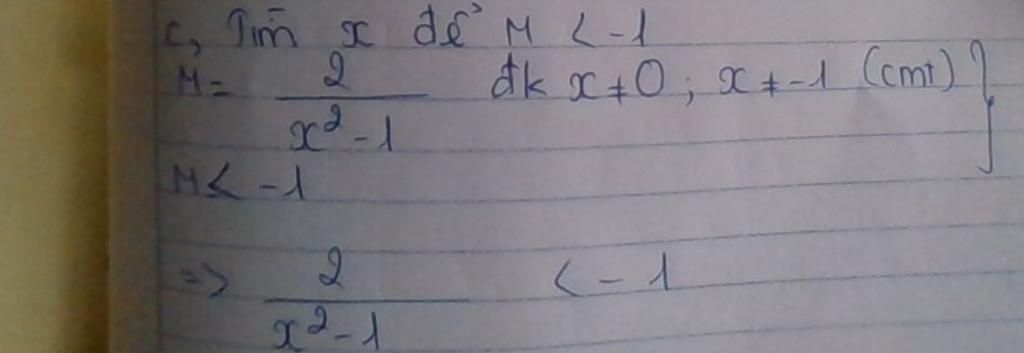 c, Tìm x để M < -1
M = 2/(x² - 1) đk x ≠ 0 ; x ≠ -1 (cmt) }
M < -1
=> 2/(x² - 1) < -1